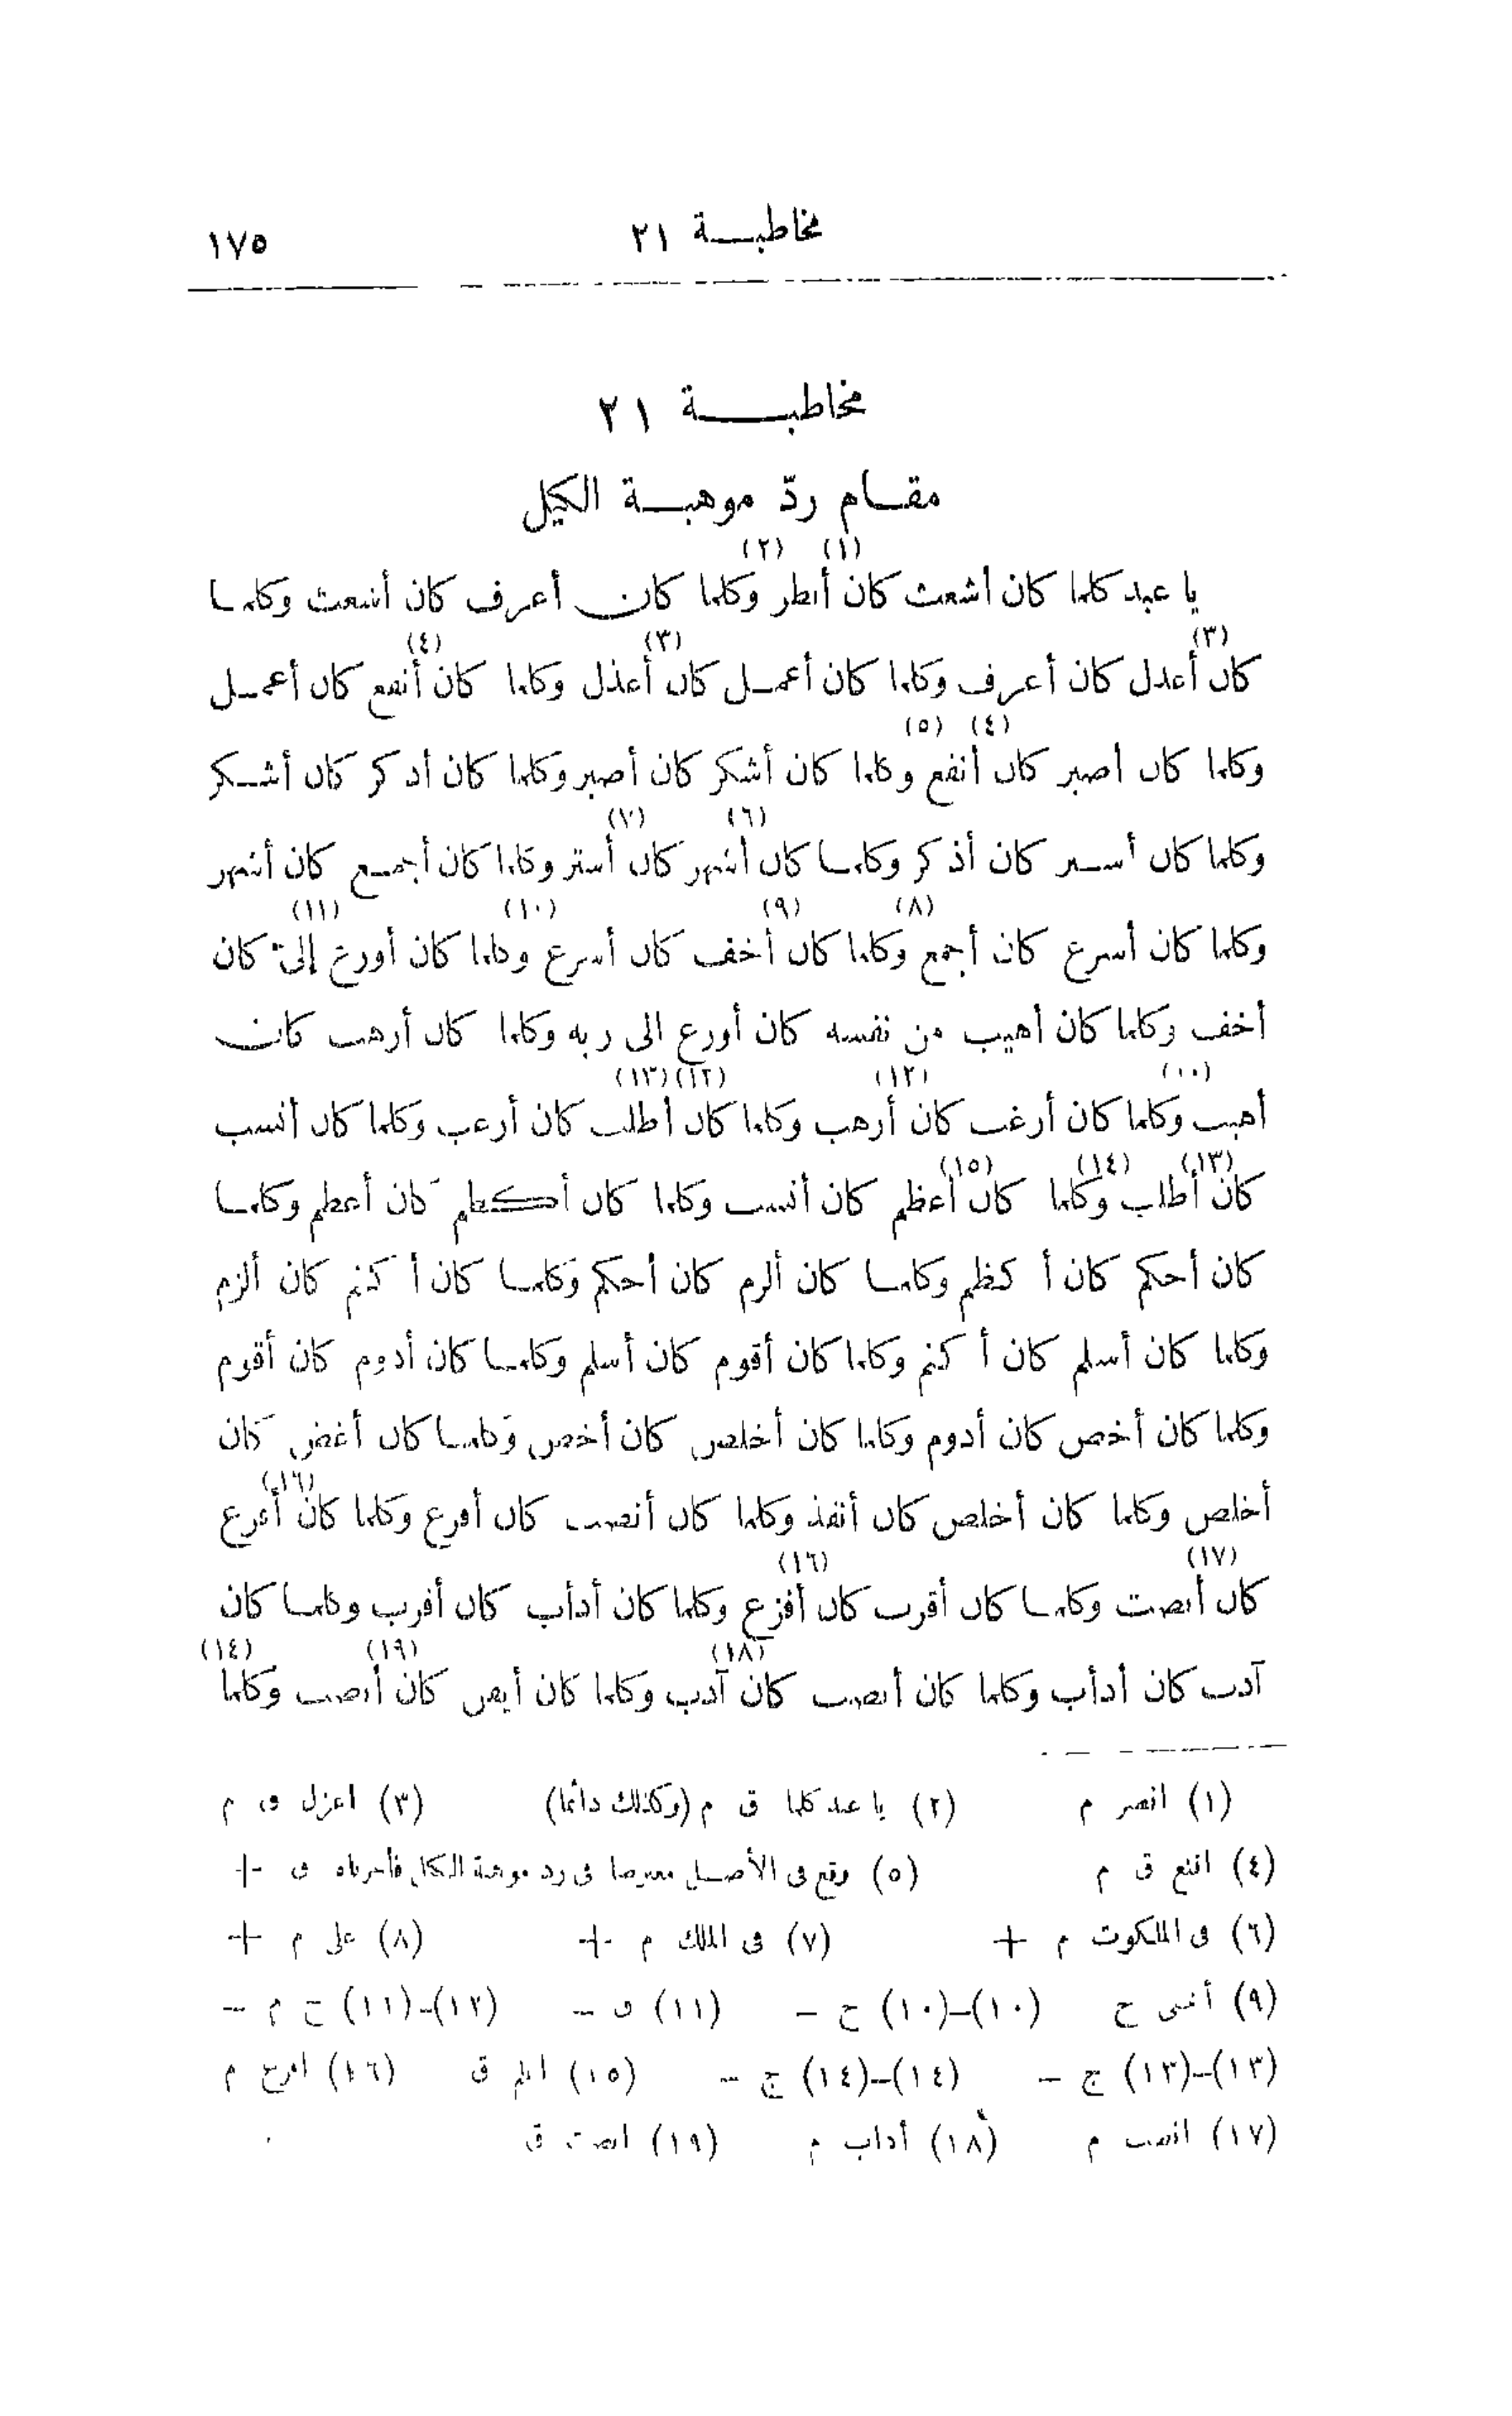 مخاطبة ٢١ ١٧٥
مخاطبة ٢١
مقام ردّ موهبة الكيل
(١) (٢)
يا عبد كلما كان أشعث كان أنظر وكلما كان أعرف كان أشعث وكلما
(٣) (٣) (٤)
كان أعدل كان أعرف وكلما كان أعمل كان أعدل وكلما كان أنفع كان أعمل
(٤) (٥)
وكلما كان أصبر كان أنفع وكلما كان أشكر كان أصبر وكلما كان أذكر كان أشكر
(٦) (٧)
وكلما كان أستر كان أذكر وكلما كان أشهر كان أستر وكلما كان أجمع كان أشهر
(٨) (٩) (١٠) (١١)
وكلما كان أسرع كان أجمع وكلما كان أخف كان أسرع وكلما كان أورع إلىّ كان
أخف وكلما كان أهيب من نفسه كان أورع الى ربه وكلما كان أرهب كان
(١٠) (١٢) (١٢) (١٣)
أهيب وكلما كان أرغب كان أرهب وكلما كان أطلب كان أرغب وكلما كان أنسب
(١٣) (١٤) (١٥)
كان أطلب وكلما كان أعظم كان أنسب وكلما كان أكظم كان أعظم وكلما
كان أحكم كان أكظم وكلما كان ألزم كان أحكم وكلما كان أكتم كان ألزم
وكلما كان أسلم كان أكتم وكلما كان أقوم كان أسلم وكلما كان أدوم كان أقوم
وكلما كان أخص كان أدوم وكلما كان أخلص كان أخص وكلما كان أغض كان
(١٦)
أخلص وكلما كان أخلص كان أنفذ وكلما كان أنصت كان أفرغ وكلما كان
(١٧) (١٦)
كان أنصت وكلما كان أقرب كان أفزع وكلما كان أدأب كان أقرب وكلما كان
(١٨) (١٩) (١٤)
آدب كان أدأب وكلما كان أنصب كان آدب وكلما كان كان أنصب وكلما
(١) انصر م (٢) يا عبد كلما ق م (وكذلك دائما) (٣) اعزل ق م
(٤) اقنع ق م (٥) وقع فى الأصل معترضا فى رد موهبة الكيل ق +
(٦) فى الملكوت م + (٧) فى الملك م + (٨) على م +
(٩) ج (١٠)–(١٠) ج – (١١) ق – (١٢)–(١١) ج م –
(١٣)–(١٣) ج – (١٤)–(١٤) ج – (١٥) ق (١٦) افرع م
(١٧) انصب م (١٨) أداب م (١٩) انصت ق